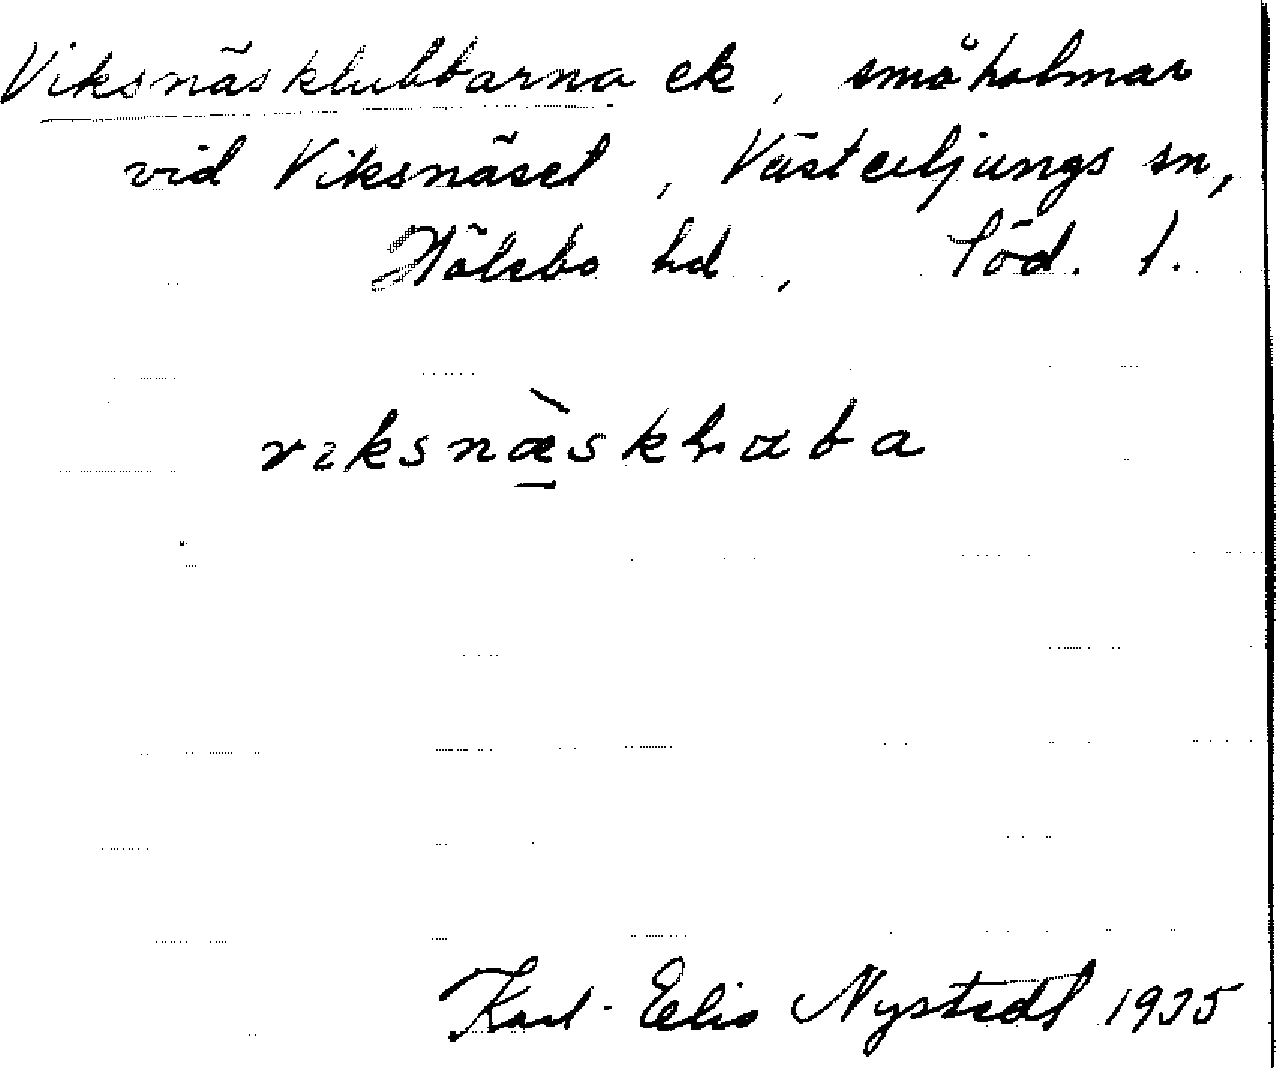 Viksnäsklubbarna ek, småholmar
vid Viksnäset, Västerljungs sn,
Hölebo hd, Söd. l.
Karl-Elis Nystedt 1935